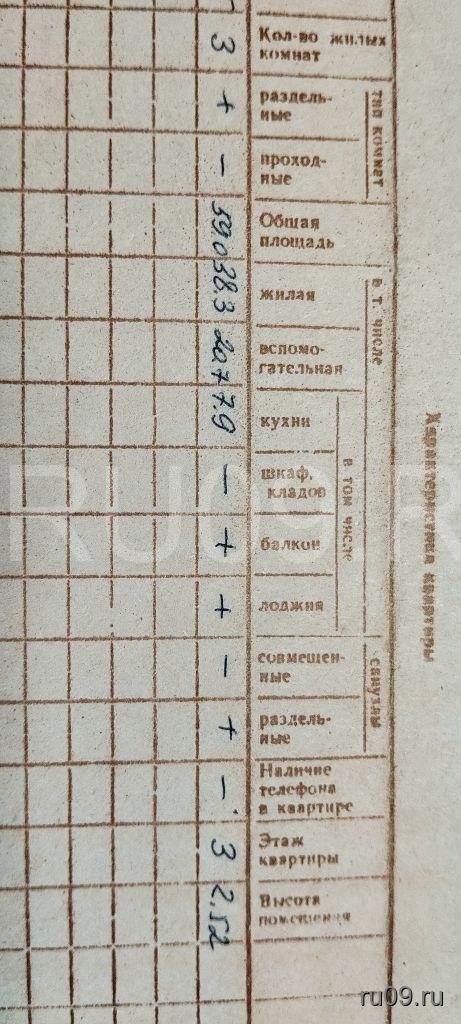 Характеристика квартиры
Кол-во жилых
комнат
3
тип комнат
раздель-
ные
+
проход-
ные
-
Общая
площадь
59,0
в т. числе
жилая
38.3
вспомо-
гательная
20,7
в том числе
кухни
7.9
шкаф,
кладов
-
балкон
+
лоджия
+
санузлы
совмещен-
ные
-
раздель-
ные
+
Наличие
телефона
в квартире
-
Этаж
квартиры
3
Высота
помещения
2,52
RU09.R
ru09.ru